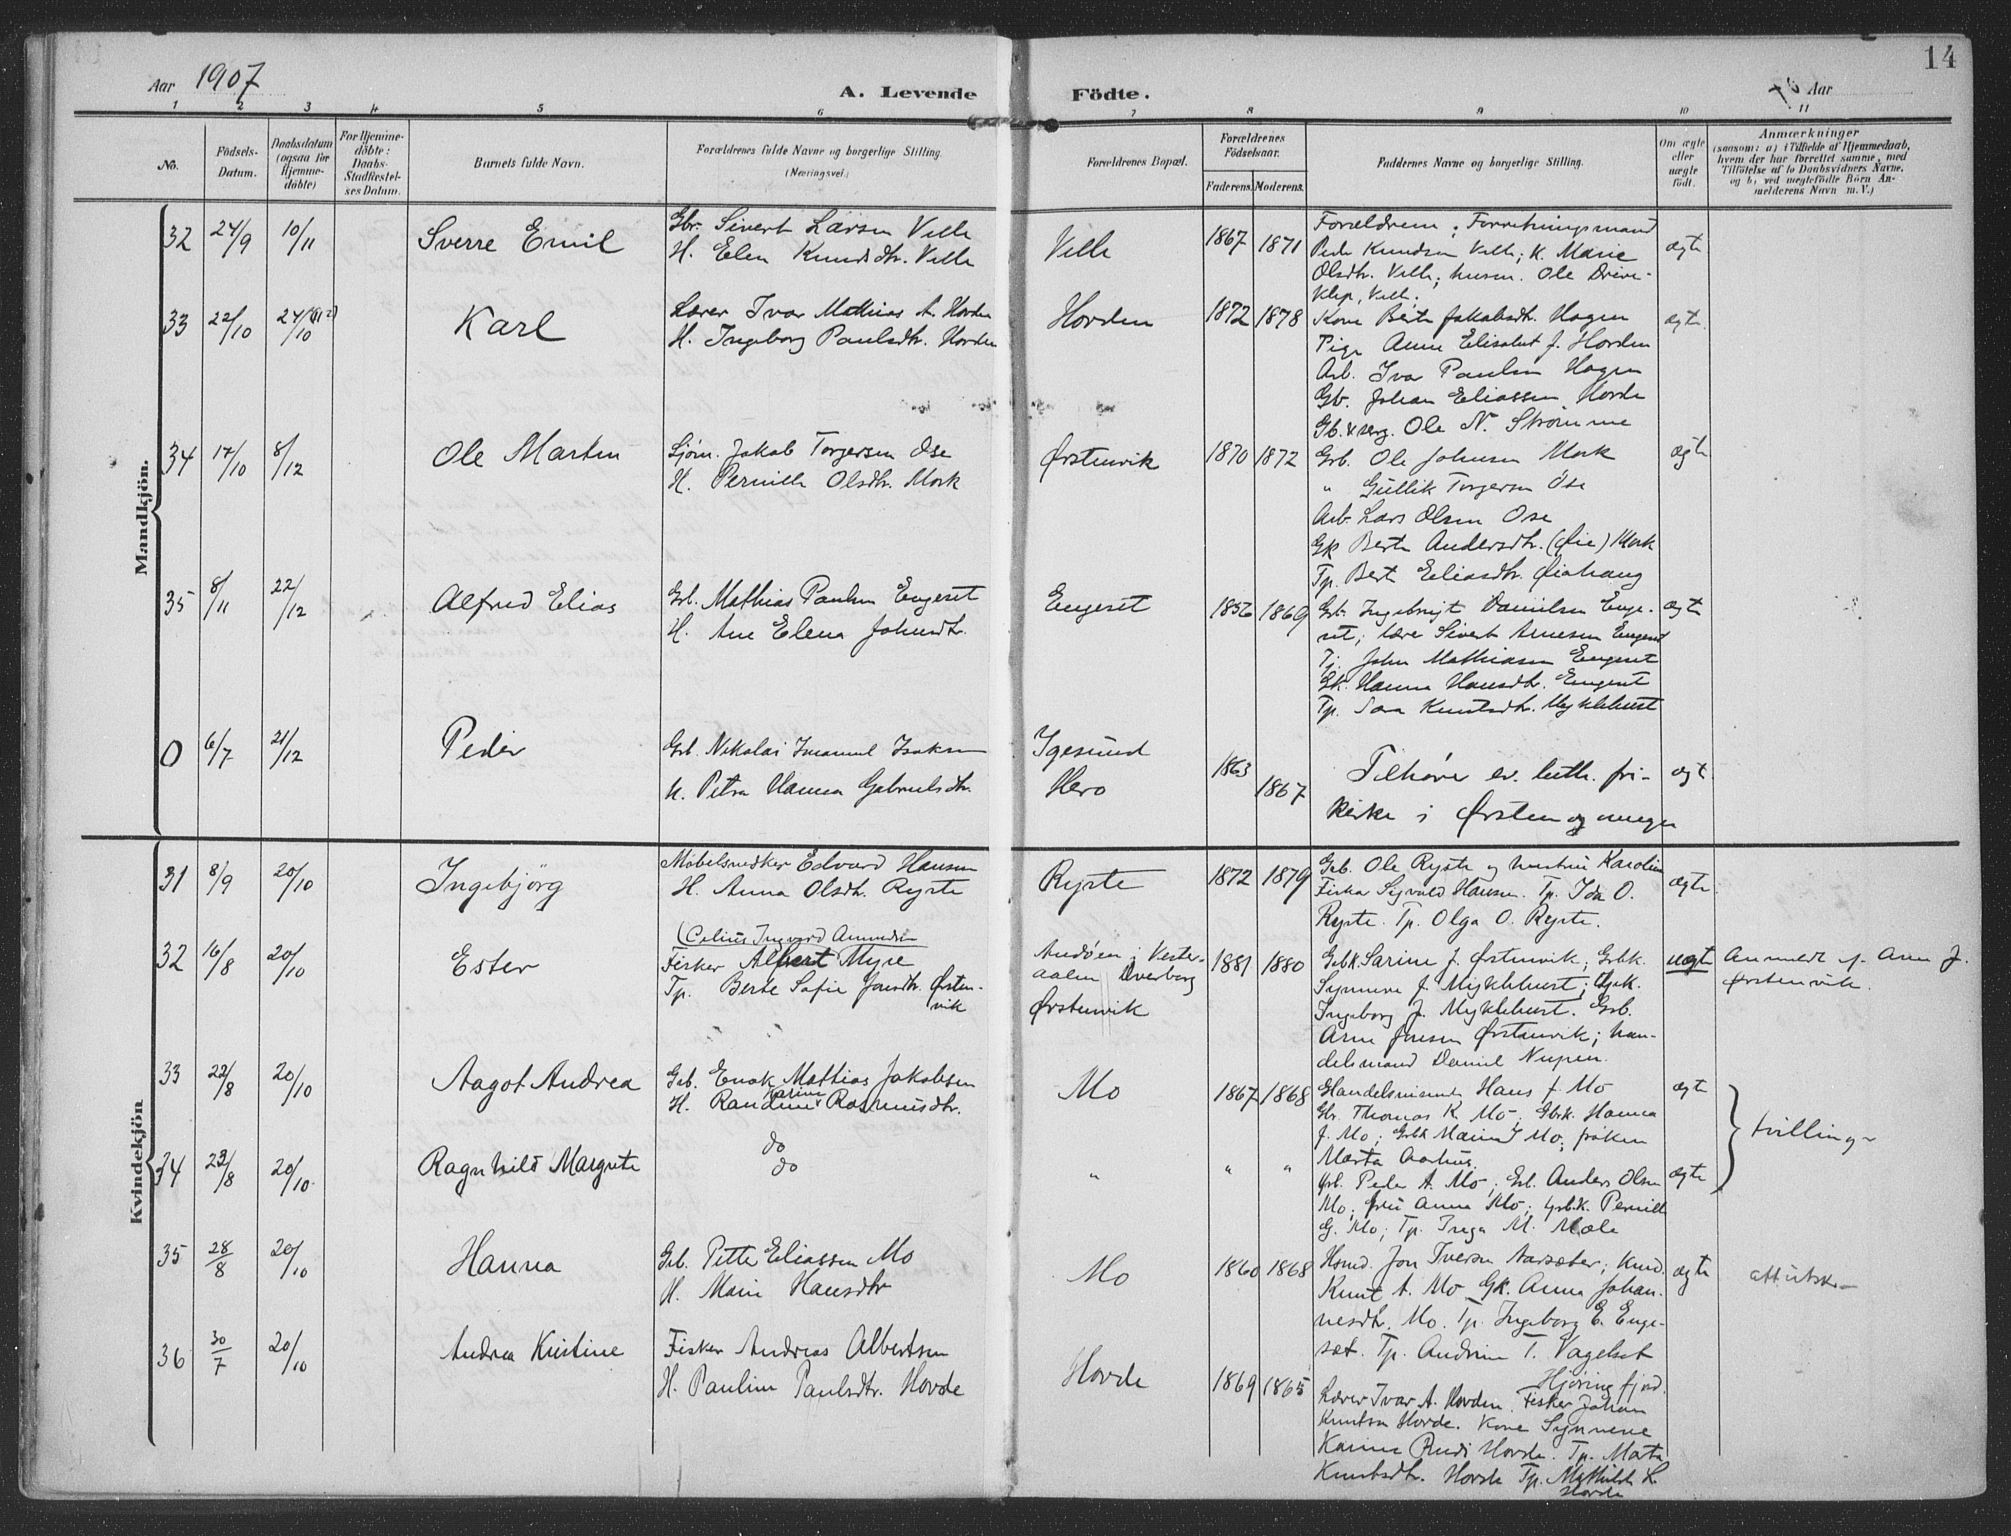 14
Aar 1907
A. Levende Födte.
07 Aar
1 2 3 4 5 6 7 8 9 10 11
No.
Födsels-
Datum.
Daabsdatum
(ogsaa for
Hjemme-
döbte)
For Hjemme-
döbte:
Daabs-
Stadfæstel-
ses Datum.
Barnets fulde Navn.
Forældrenes fulde Navne og borgerlige Stilling.
(Næringsvei.)
Forældrenes Bopæl.
Forældrenes
Fødselsaar.
Faderens. Moderens.
Faddernes Navne og borgerlige Stilling.
Om ægte
eller
uægte
født.
Anmærkninger
(saasom: a) i Tilfælde af Hjemmedaab,
hvem der har forrettet samme, med
Tilföielse af to Daabsvidners Navne,
og b) ved uægtefödte Börn An-
melderens Navn m. V.)
Mandkjön.
32 24/9 10/11 Sverre Emil
Gbr. Sivert Larsen Velle
H. Elen Knudsdtr. Velle
Velle 1867 1871
Forældrene; Forretningsmand
Peder Knudsen Velle; K. Marie
Olsdtr. Velle; husm. Ole Drive-
klep, Velle.
ægte
33 22/10 24/10 Karl
Lærer Ivar Mathias A. Hovden
H. Ingeborg Paulsdtr. Hovden
Hovden 1872 1878
Kone Berte Jakobsdtr. Hagen
Pige Anne Elisabet J. Hovden
Arb. Ivar Paulsen Hagen
Gb. Johan Eliassen Hovde
Gb. & serg. Ole N. Strømme
ægte
34 17/10 8/12 Ole Martin
Sjøm. Jakob Torgersen Ose
H. Pernille Olsdtr. Mork
Ørstenvik 1870 1872
Grb. Ole Johnsen Mork
" Gullik Torgersen Ose
Arb. Lars Olsen Ose
Gk Berte Andersdtr. (Øie) Mork
Tp. Berte Eliasdtr. Øiehaug
ægte
35 8/11 22/12 Alfred Elias
Grb. Mathias Paulsen Engeset
H. Ane Elena Johnsdtr.
Engeset 1856 1869
Grb. Ingebrigt Danielsen Enge-
set; lærer Sivert Arnesen Engeset
Tj. John Mathiasen Engeset
Gk. Hanna Hansdtr. Engeset
Tp. Sara Knutsdtr. Myklebust
ægte
0 6/7 21/12 Peder
Grb. Nikolai Imanuel Isaksen
H. Petra Hanna Gabrielsdtr.
Igesund
Herø
1863 1867
Tilhører ev. luth. fri-
kirke i Ørsten og omegn
ægt.
Kvindekjön
31 8/9 20/10 Ingebjörg
Møbelsnedker Edvard Hansen
H. Anna Olsdtr. Ryste
Ryste 1872 1879
Grb. Ole Ryste og hustru Karoline
Fisker Sigvald Hansen. Tp. Ida O.
Ryste. Tp. Olga O. Ryste.
ægte.
32 16/8 20/10 Ester
(Celius Ingvard Amundsen
Fisker Albert Myre
Tp. Berte Sofie Jonsdtr. Ørsten-
vik
Andøen i Vester-
aalen
Ørstenvik
1881 1880
Grbk. Sarine J. Ørstenvik; Grbk.
Synneve J. Myklebust; Gbk.
Ingeborg J. Myklebust. Grb.
Arne Jonsen Ørstenvik; han-
delsmand Daniel Nupen.
uægt
Anmeldt af Arne J.
Ørstenvik.
33 22/8 20/10 Aagot Andrea
Grb. Enok Mathias Jakobsen
Karine
H. Randine Rasmusdtr.
Mo 1867 1868
Handelsmand Hans J. Mo
Gbr. Thomas K. Mo; Gbrk. Hanna
J. Mo; Grbk Marie J Mo; frøken
Marta Aarhus.
ægte
tvillinge
34 23/8 20/10 Ragnhild Margrete
do
do
" " "
Grb. Peder A. Mo; Grb. Anders Olsen
Mo; frøi Anna Mo; Grb.k. Pernille
G. Mo; Tp. Inga M. Mæle
ægte
35 28/8 20/10 Hanna
Grb. Petter Eliassen Mo
H. Marie Hansdtr
Mo 1860 1868
Husmd. Jon Iversen Aarsæter;
Knut A. Mo Gk. Anna Johan-
nesdtr. Mo. Tp. Ingeborg E. Enge-
sæt. Tp. Andrine T. Vagelset
Hjøringfjord.
ægte
36 30/7 20/10 Andrea Kristine
Fisker Andreas Albertsen
H. Pauline Paulsdtr. Hovde
Hovde 1869 1865
Lærer Ivar A. Hovden. Fisker Johan
Knutsen Hovde. Kone Synneve
Karine Hovde. Tp. Marta
Knutsdtr. Hovde Tp. Mathilde L.
Hovde